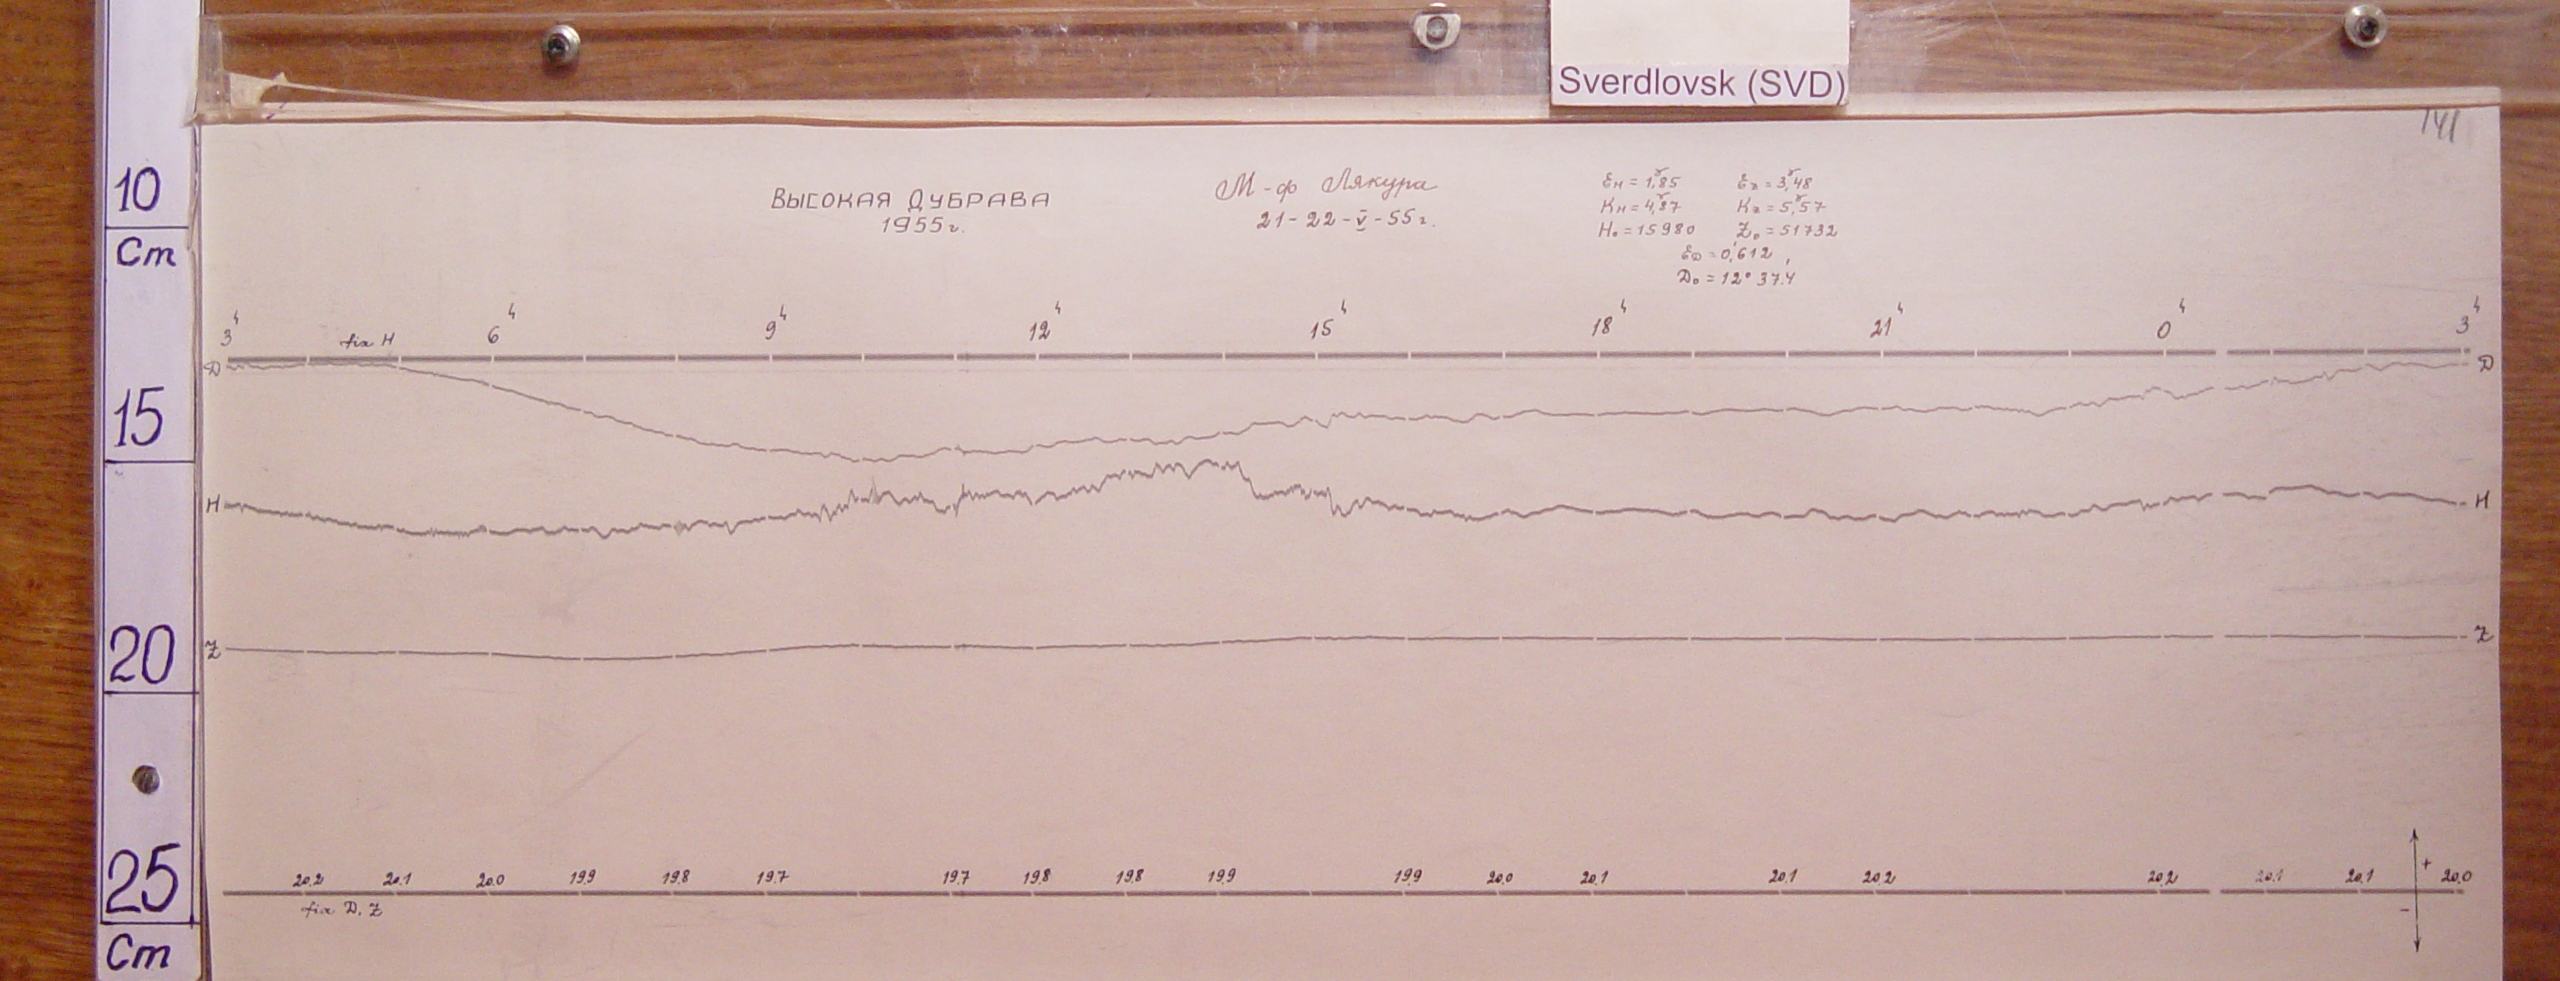 Sverdlovsk (SVD)
141
10
Cm
15
20
25
Cm
ВЫСОКАЯ ДУБРАВА
1955 г.
М-ф Лякура
21-22-V-55 г.
Ɛн = 1,γ85 Ɛz = 3,γ48
Кн = 4,γ87 Кz = 5,γ57
H₀ = 15980 Z₀ = 51732
ƐD = 0,′612
D₀ = 12° 37.′4
3ч 6ч 9ч 12ч 15ч 18ч 21ч 0ч 3ч
fix H
D D
H H
Z Z
20.2 20.1 20.0 19.9 19.8 19.7 19.7 19.8 19.8 19.9 19.9 20.0 20.1 20.1 20.2 20.2 20.1 20.1 20.0
fix D, Z
+
−